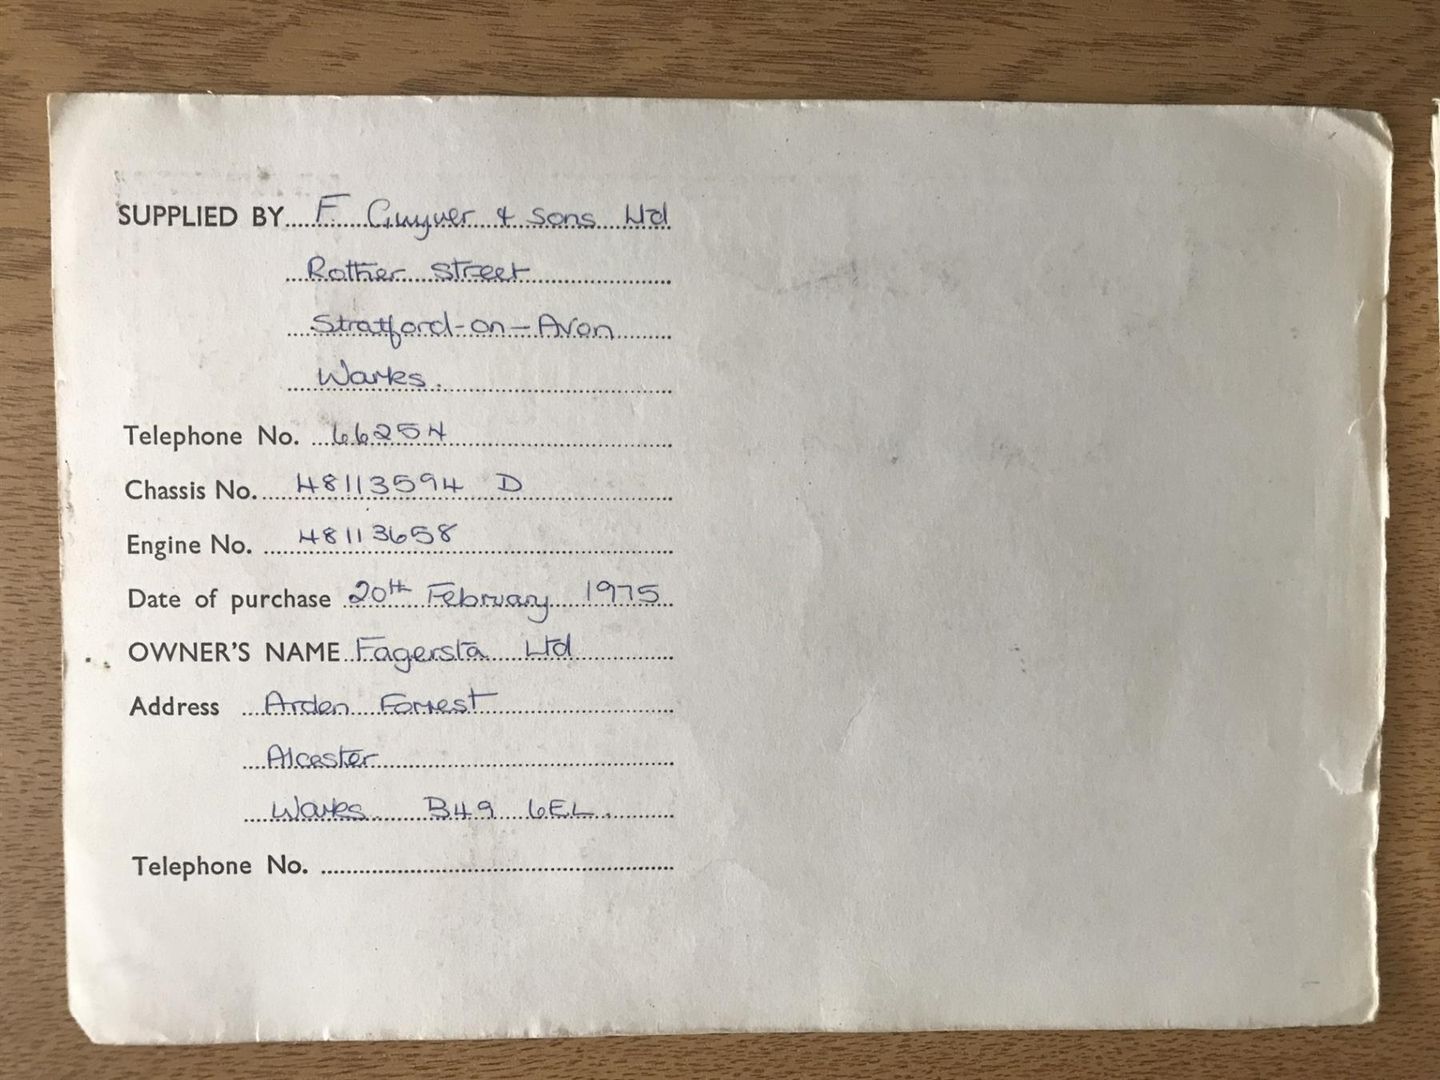 SUPPLIED BY F. Guyver & Sons Ltd
Rother Street
Stratford-on-Avon
Warks.
Telephone No. 66254
Chassis No. 48113594 D
Engine No. 48113658
Date of purchase 20th February 1975
OWNER'S NAME Fagersta Ltd
Address Arden Forrest
Alcester
Warks B49 6EL.
Telephone No.